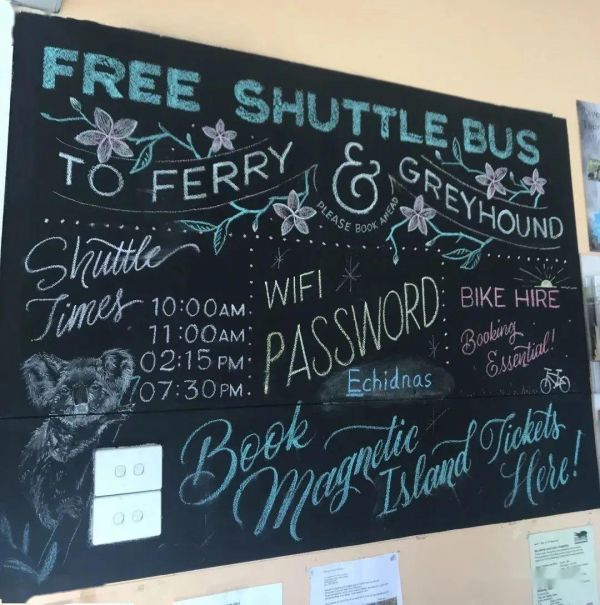 FREE SHUTTLE BUS
TO FERRY & GREYHOUND
PLEASE BOOK AHEAD
Shuttle
Times
10:00AM
11:00AM
02:15 PM
07:30PM
WIFI
PASSWORD
Echidnas
BIKE HIRE
Booking
Essential!
Book
Magnetic
Island Tickets
Here!